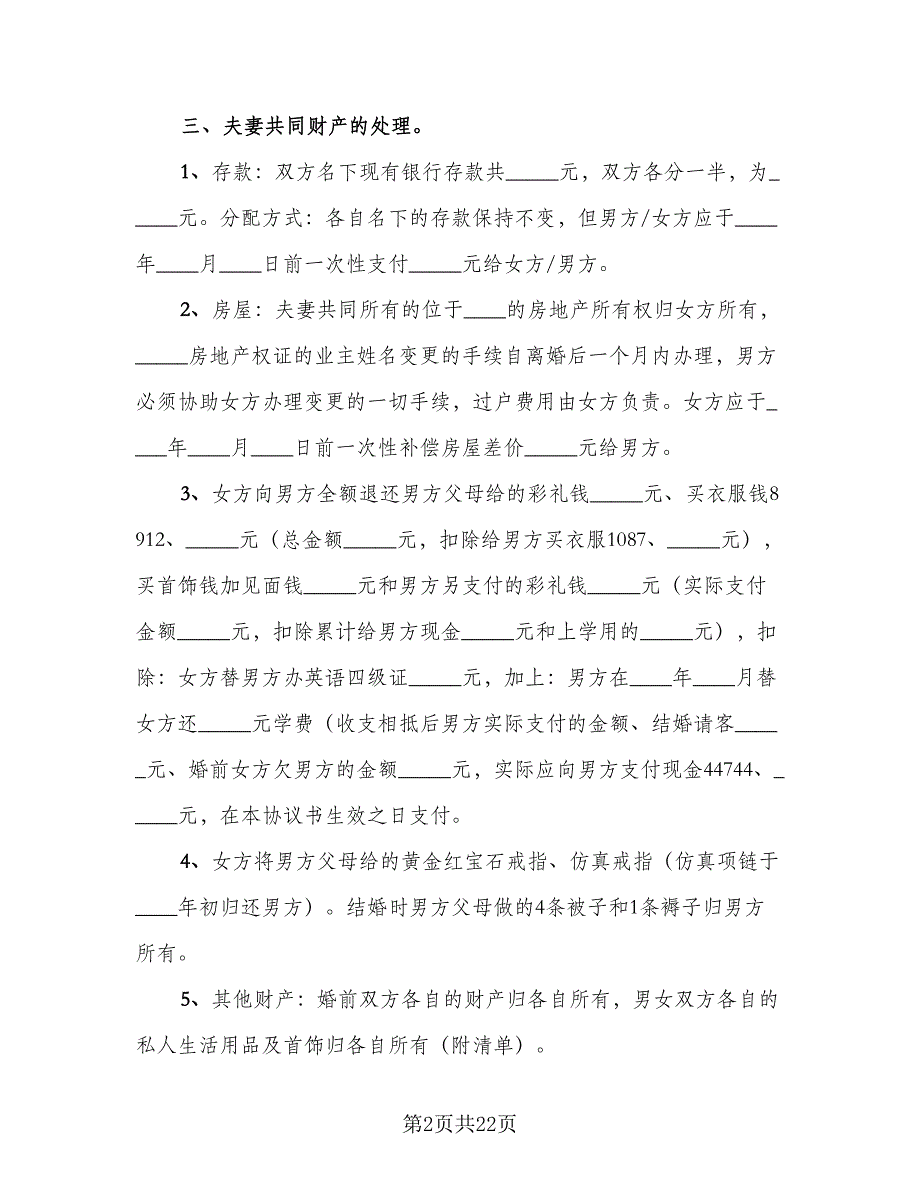 三、夫妻共同财产的处理。
1、存款：双方名下现有银行存款共_____元，双方各分一半，为_
____元。分配方式：各自名下的存款保持不变，但男方/女方应于____
年____月____日前一次性支付_____元给女方/男方。
2、房屋：夫妻共同所有的位于____的房地产所有权归女方所有，
_____房地产权证的业主姓名变更的手续自离婚后一个月内办理，男方
必须协助女方办理变更的一切手续，过户费用由女方负责。女方应于_
___年____月____日前一次性补偿房屋差价_____元给男方。
3、女方向男方全额退还男方父母给的彩礼钱_____元、买衣服钱8
912、_____元（总金额_____元，扣除给男方买衣服1087、_____元），
买首饰钱加见面钱_____元和男方另支付的彩礼钱_____元（实际支付
金额_____元，扣除累计给男方现金_____元和上学用的_____元），扣
除：女方替男方办英语四级证_____元，加上：男方在____年____月替
女方还_____元学费（收支相抵后男方实际支付的金额、结婚请客____
_元、婚前女方欠男方的金额_____元，实际应向男方支付现金44744、_
____元，在本协议书生效之日支付。
4、女方将男方父母给的黄金红宝石戒指、仿真戒指（仿真项链于
____年初归还男方）。结婚时男方父母做的4条被子和1条褥子归男方
所有。
5、其他财产：婚前双方各自的财产归各自所有，男女双方各自的
私人生活用品及首饰归各自所有（附清单）。
第2页共22页